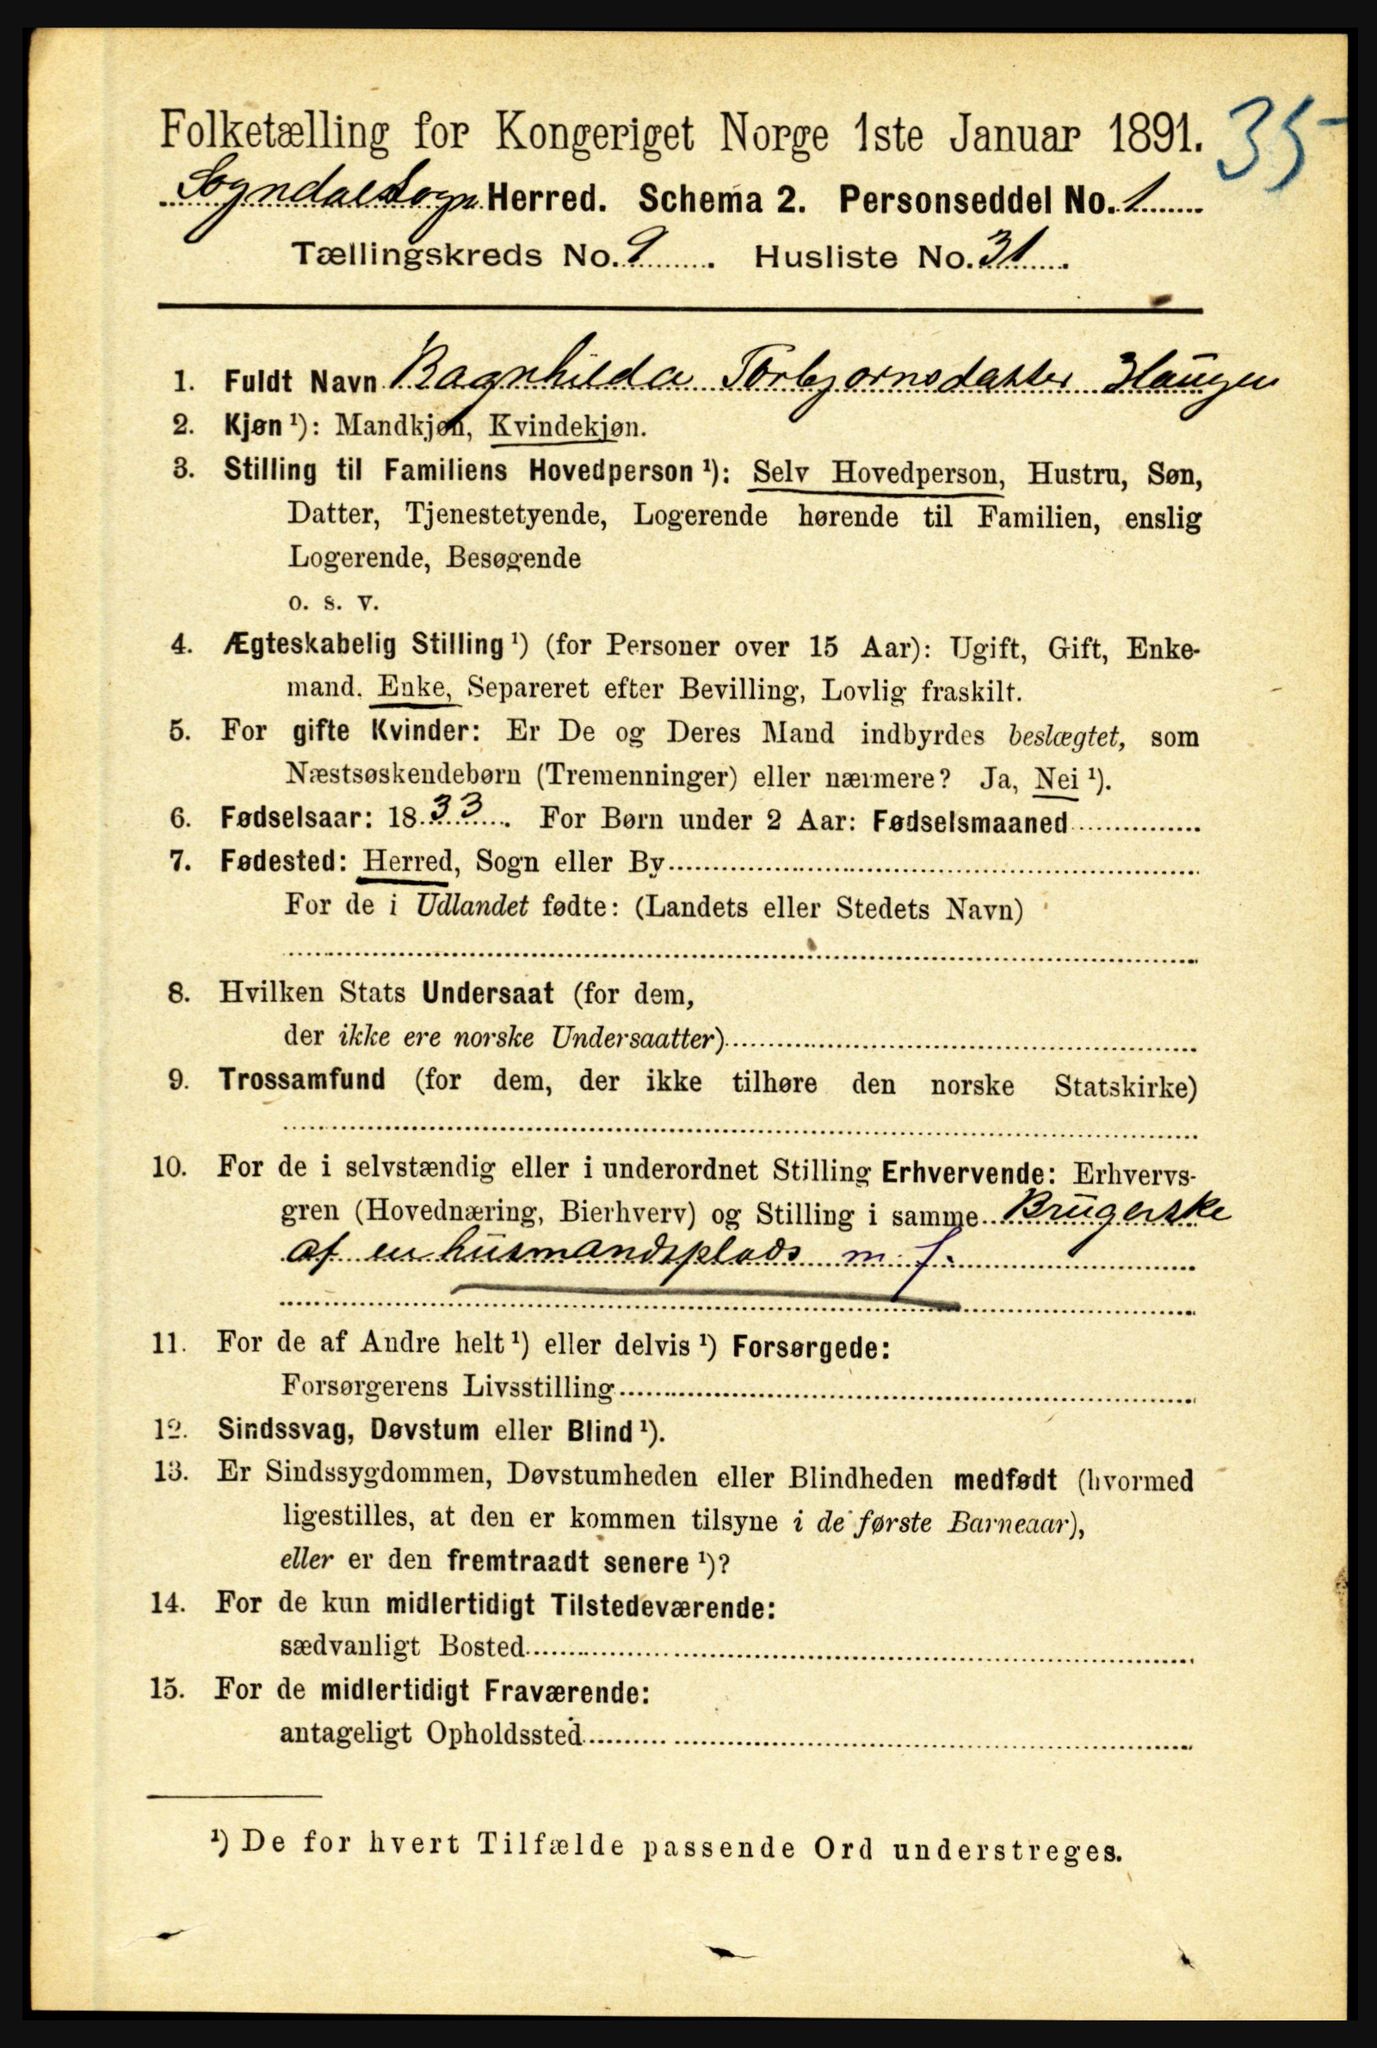 Folketælling for Kongeriget Norge 1ste Januar 1891.
35
Sogndal Sogn Herred. Schema 2. Personseddel No. 1
Tællingskreds No. 9. Husliste No. 31.
1. Fuldt Navn Ragnhilda Torbjørnsdatter Haugen
2. Kjøn ¹): Mandkjøn, Kvindekjøn.
3. Stilling til Familiens Hovedperson ¹): Selv Hovedperson, Hustru, Søn,
Datter, Tjenestetyende, Logerende hørende til Familien, enslig
Logerende, Besøgende
o. s. v.
4. Ægteskabelig Stilling ¹) (for Personer over 15 Aar): Ugift, Gift, Enke-
mand, Enke, Separeret efter Bevilling, Lovlig fraskilt.
5. For gifte Kvinder: Er De og Deres Mand indbyrdes beslægtet, som
Næstsøskendebørn (Tremenninger) eller nærmere? Ja, Nei ¹).
6. Fødselsaar: 1833. For Børn under 2 Aar: Fødselsmaaned
7. Fødested: Herred, Sogn eller By
For de i Udlandet fødte: (Landets eller Stedets Navn)
8. Hvilken Stats Undersaat (for dem,
der ikke ere norske Undersaatter)
9. Trossamfund (for dem, der ikke tilhøre den norske Statskirke)
10. For de i selvstændig eller i underordnet Stilling Erhvervende: Erhvervs-
gren (Hovednæring, Bierhverv) og Stilling i samme Brugerske
af en husmandsplads m. j.
11. For de af Andre helt ¹) eller delvis ¹) Forsørgede:
Forsørgerens Livsstilling
12. Sindssvag, Døvstum eller Blind ¹).
13. Er Sindssygdommen, Døvstumheden eller Blindheden medfødt (hvormed
ligestilles, at den er kommen tilsyne i de første Barneaar),
eller er den fremtraadt senere ¹)?
14. For de kun midlertidigt Tilstedeværende:
sædvanligt Bosted
15. For de midlertidigt Fraværende:
antageligt Opholdssted
¹) De for hvert Tilfælde passende Ord understreges.